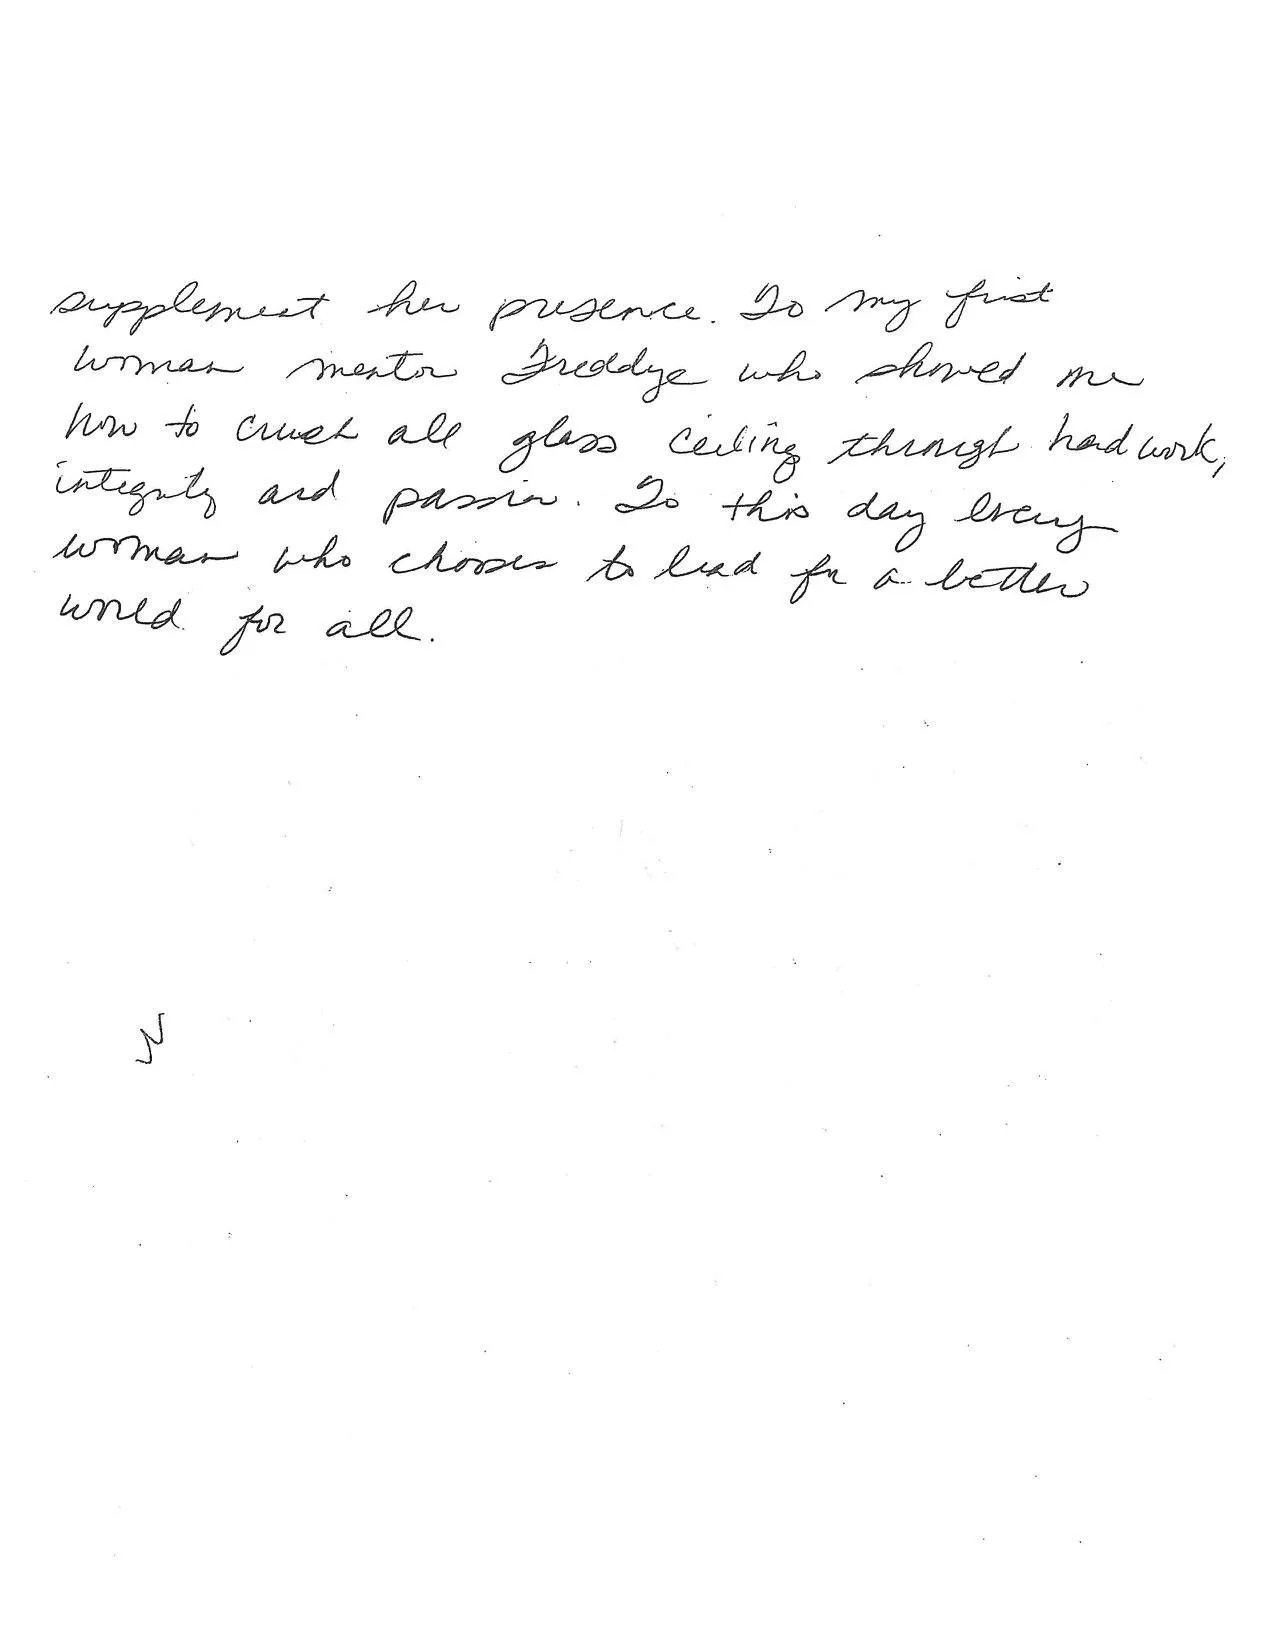 supplement her presence. To my first
woman mentor Freddye who showed me
how to crush all glass ceiling through hard work,
integrity and passion. To this day every
woman who chooses to lead for a better
world for all.